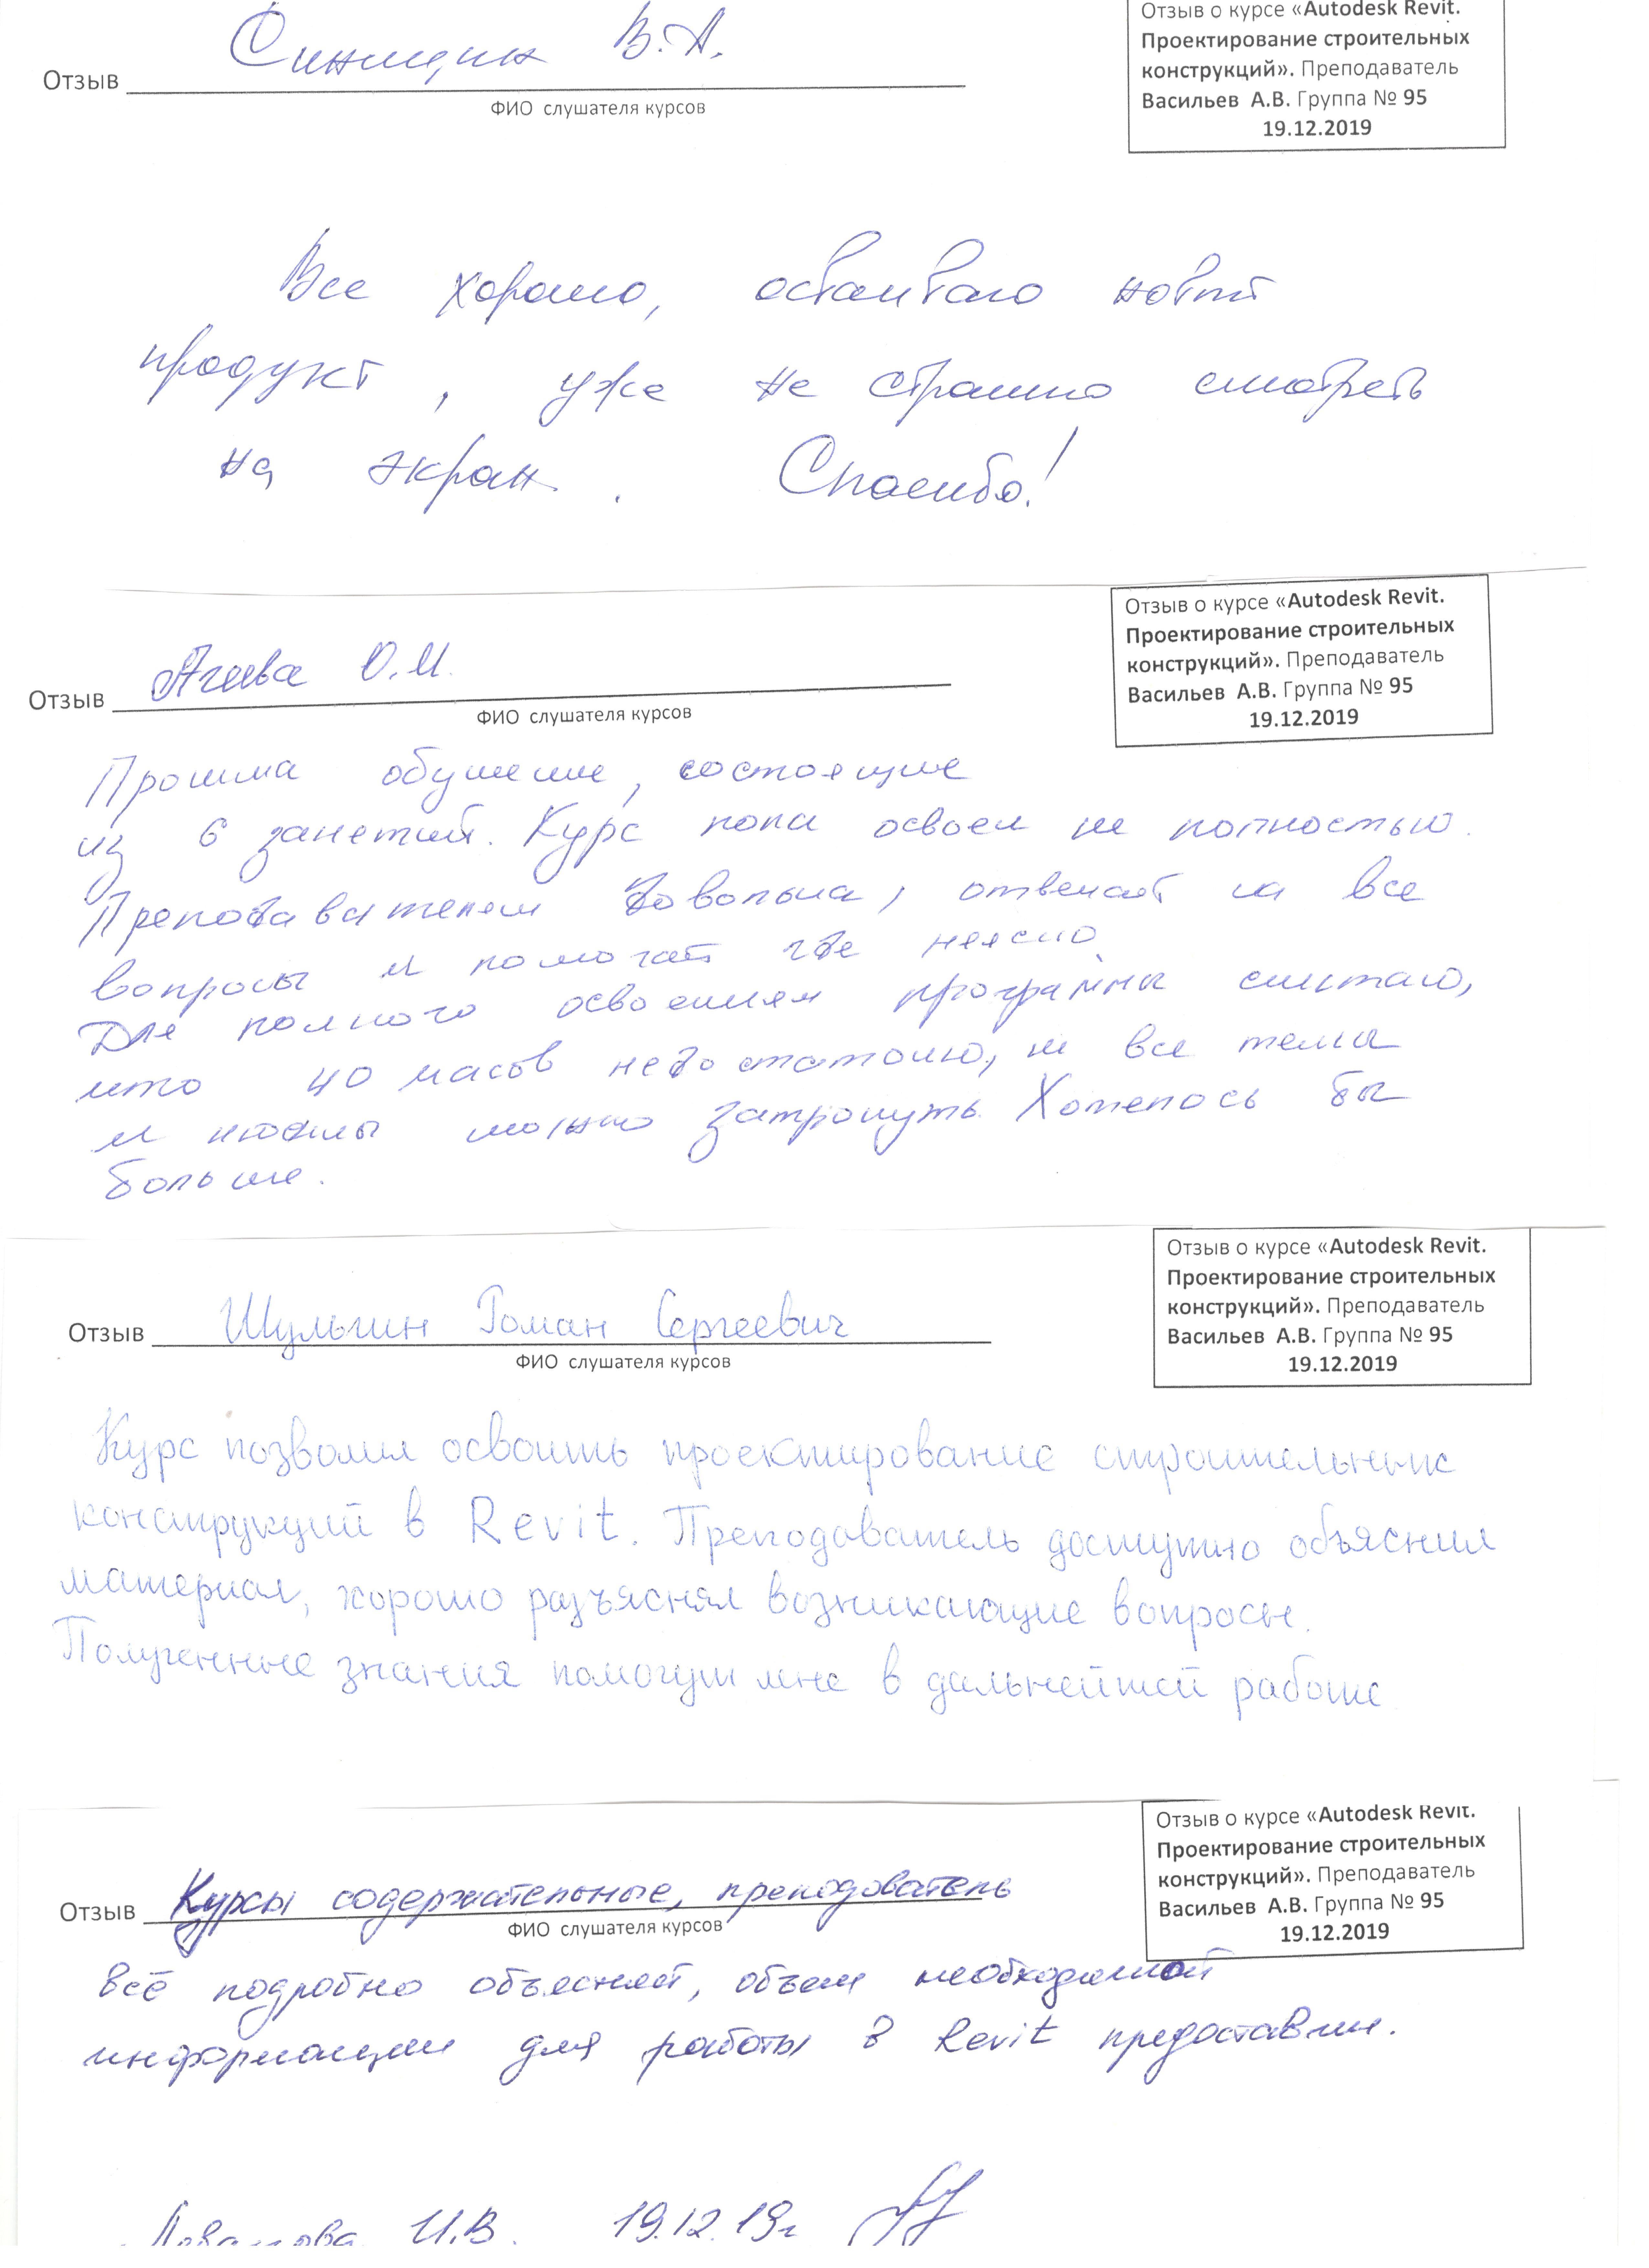 Отзыв Синицин В.А.
ФИО слушателя курсов
Отзыв о курсе «Autodesk Revit.
Проектирование строительных
конструкций». Преподаватель
Васильев А.В. Группа № 95
19.12.2019
Все хорошо, осваиваю новый
продукт, уже не страшно смотреть
на экран. Спасибо!
Отзыв Агеева О.И.
ФИО слушателя курсов
Отзыв о курсе «Autodesk Revit.
Проектирование строительных
конструкций». Преподаватель
Васильев А.В. Группа № 95
19.12.2019
Прошла обучение, состоящие
из 6 занетий. Курс пока освоен не полностью.
Преподавателем довольна, отвечает на все
вопросы и помогает где неясно.
Для полного освоения программы считаю,
что 40 часов недостаточно, не все темы
и нюансы можно затронуть. Хотелось бы
больше.
Отзыв Шульгин Роман Сергеевич
ФИО слушателя курсов
Отзыв о курсе «Autodesk Revit.
Проектирование строительных
конструкций». Преподаватель
Васильев А.В. Группа № 95
19.12.2019
Курс позволил освоить проектирование строительных
конструкций в Revit. Преподаватель доступно объяснил
материал, хорошо разъяснял возникающие вопросы.
Полученные знания помогут мне в дальнейшей работе
Отзыв Курсы содержательные, преподователь
ФИО слушателя курсов
Отзыв о курсе «Autodesk Revit.
Проектирование строительных
конструкций». Преподаватель
Васильев А.В. Группа № 95
19.12.2019
всё подробно объесняет, объем необходимой
информации для работы в Revit предоставлен.
И.В. 19.12.19г